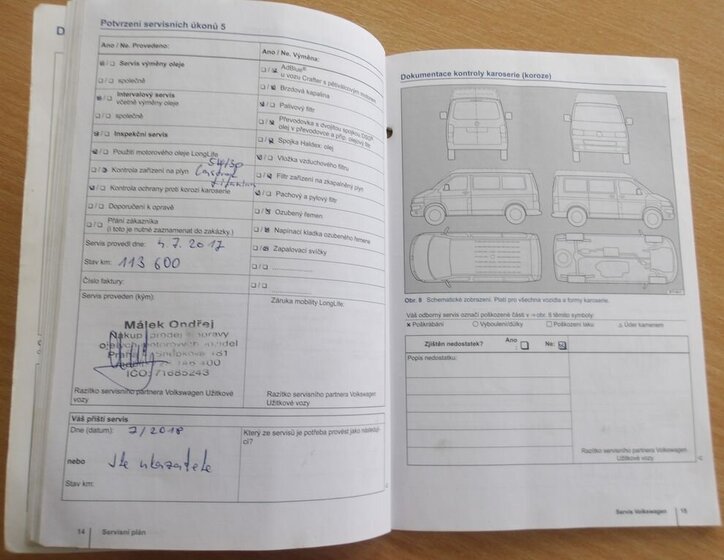 Potvrzení servisních úkonů 5
Ano / Ne. Provedeno:
Servis výměny oleje
společně
Intervalový servis
včetně výměny oleje
společně
Inspekční servis
Použití motorového oleje LongLife
5W/30
Kontrola zařízení na plyn
Kontrola ochrany proti korozi karoserie
Doporučení k opravě
Přání zákazníka
(i toto je nutné zaznamenat do zakázky.)
Servis provedl dne: 4.7.2017
Stav km: 113 600
Číslo faktury:
Servis proveden (kým):
Málek Ondřej
Nákup prodej opravy
motorových vozidel
IČO: 71685243
Razítko servisního partnera Volkswagen Užitkové
vozy
Ano / Ne. Výměna:
AdBlue®
u vozu Crafter s pětiválcovým motorem
Brzdová kapalina
Palivový filtr
Převodovka s dvojitou spojkou DSG®
olej v převodovce a příp. olejový filtr
Spojka Haldex: olej
Vložka vzduchového filtru
Filtr zařízení na zkapalněný plyn
Pachový a pylový filtr
Ozubený řemen
Napínací kladka ozubeného řemene
Zapalovací svíčky
Záruka mobility LongLife:
Razítko servisního partnera Volkswagen
Užitkové vozy
Váš příští servis
Dne (datum): 7/2018
nebo
dle ukazatele
Stav km:
Který ze servisů je potřeba provést jako následující?
14 Servisní plán
Dokumentace kontroly karoserie (koroze)
Obr. 8 Schematické zobrazení. Platí pro všechna vozidla a formy karoserie.
Váš odborný servis označí poškozené části v ⇒ obr. 8 těmito symboly:
× Poškrábání ○ Vyboulení/důlky □ Poškození laku △ Úder kamenem
Zjištěn nedostatek? Ano Ne:
Popis nedostatku:
Razítko servisního partnera Volkswagen
Užitkové vozy
Servis Volkswagen 15